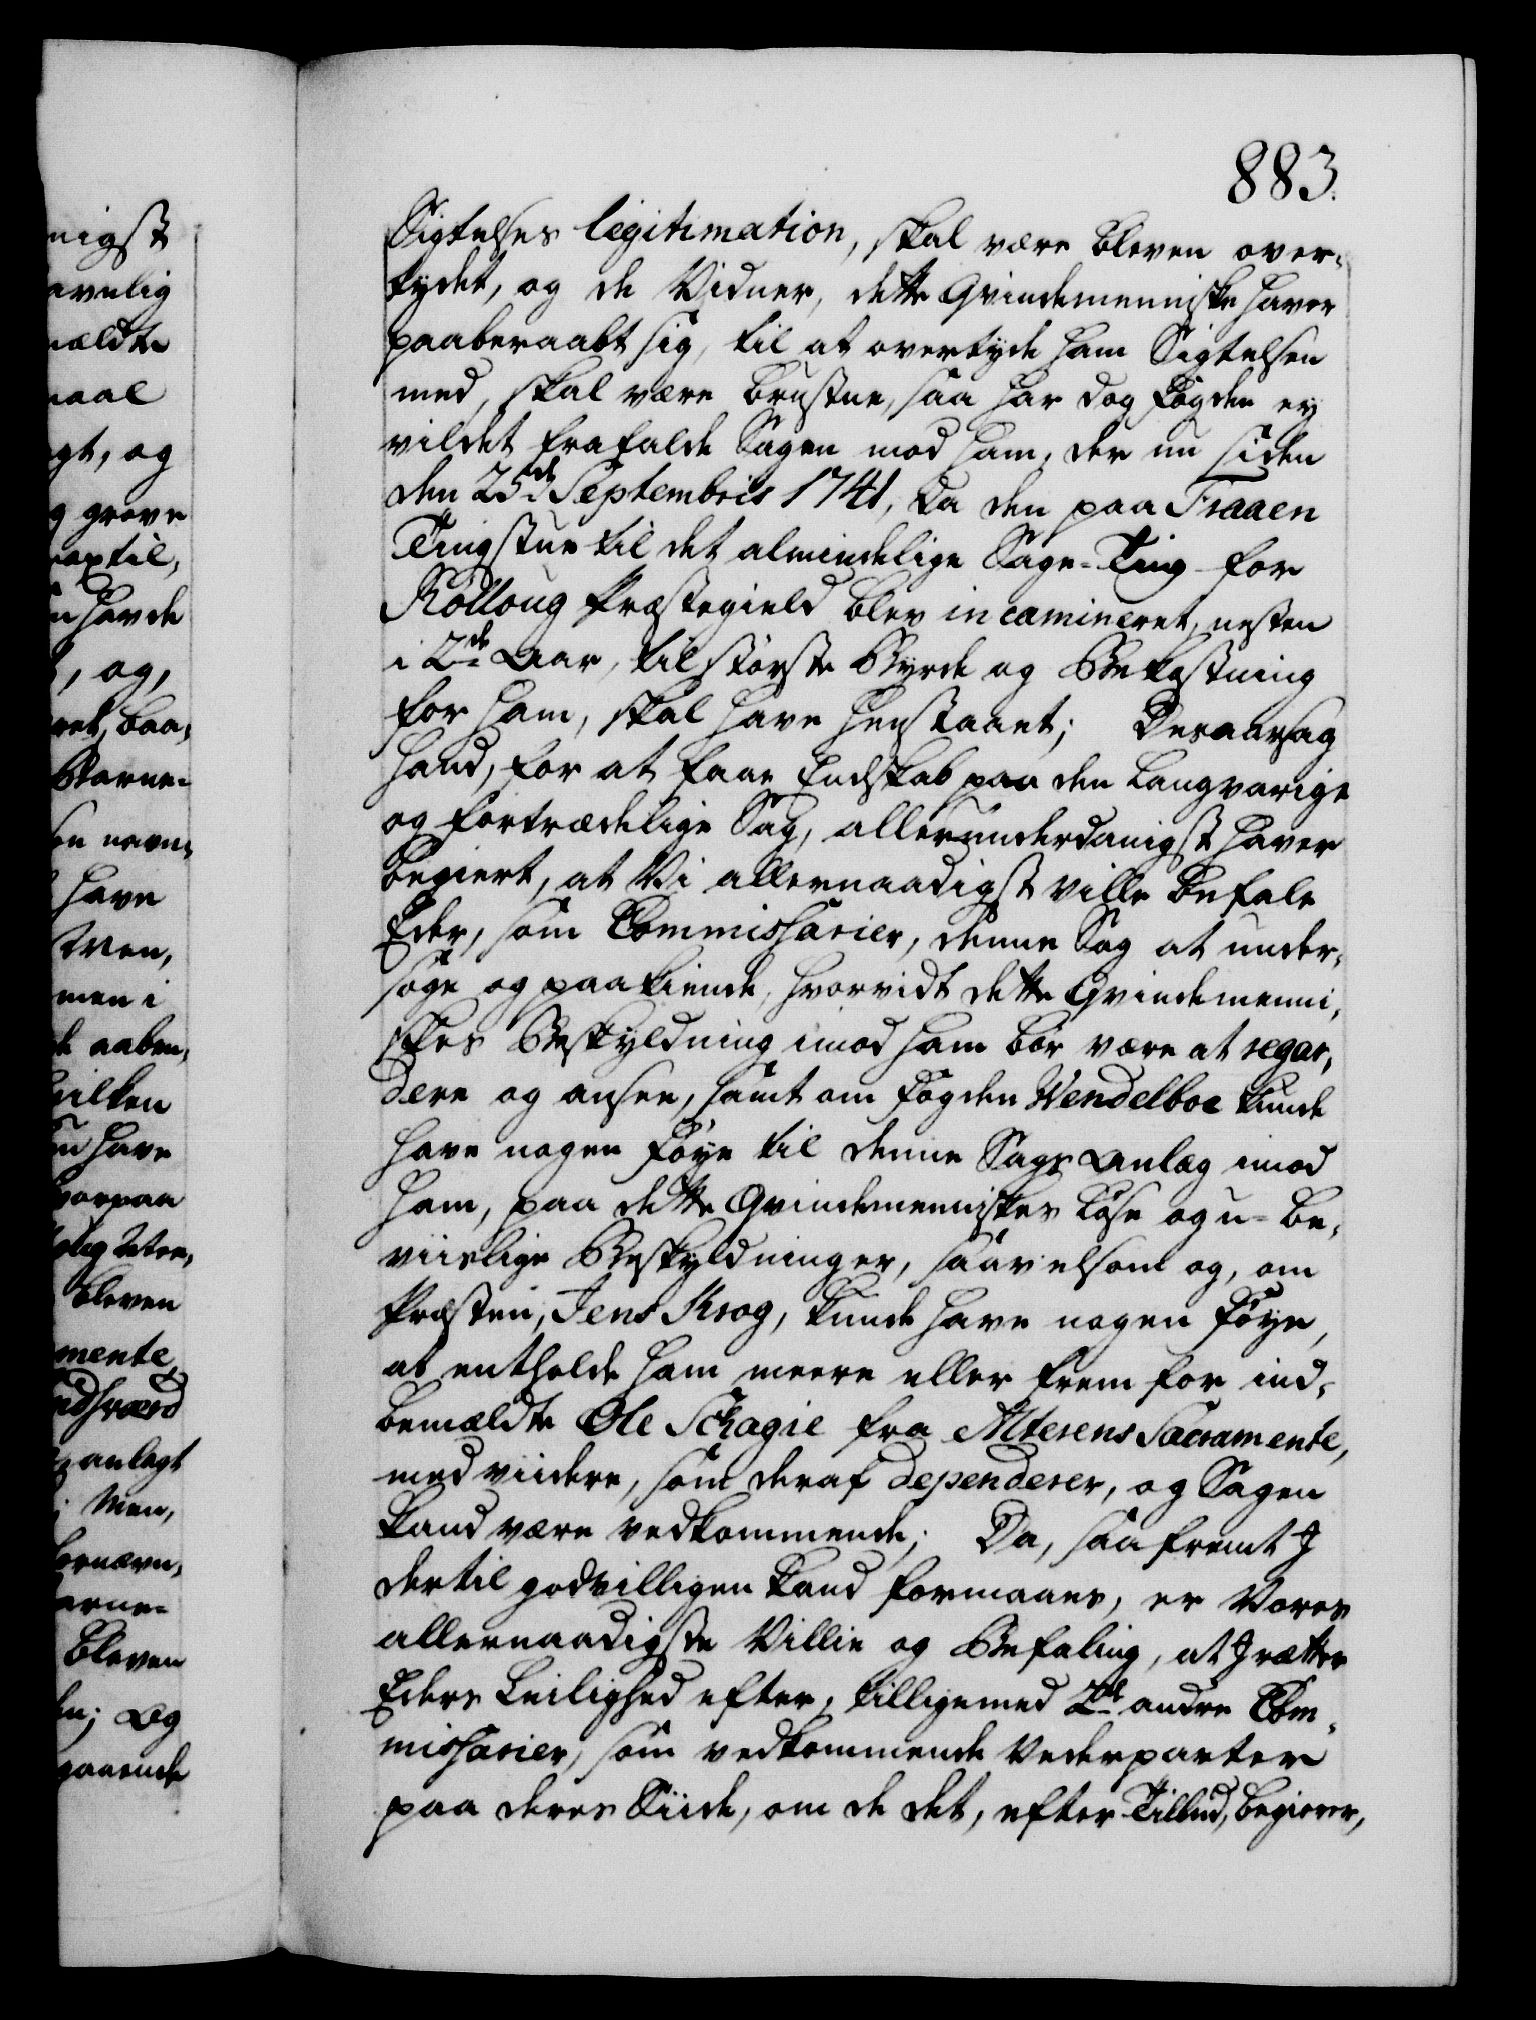 883.
Sigtelses legitimation, skal være bleven over-
tydet, og de Vidner, dette Qvindemenniske haver
paaberaabt sig, til at overtyde ham Sigtelsen
med, skal være brustne, saa har dog Fogden ey
vildet frafalde Sagen mod ham, der nu siden
den 25de Septembris 1741, da den paa Traaen
Tingstue til det almindelige Sage-Ting for
Rolloug Præstegield blev incamineret, nesten
i 2de Aar, til største Byrde og Bekostning
for ham, skal have henstaaet; Desaarsag
hand, for at faae Endskab paa den langvarige
og fortrædelige Sag, allerunderdanigst haver
begiert, at Vi allernaadigst ville befale
Eder, som Commissarier, denne Sag at under-
søge og paakiende, hvorvidt dette Qvindemenni-
skes Beskyldning imod ham bør være at regar-
dere og ansee, samt om Fogden Wendelboe kunde
have nogen Føye til denne Sags Anlæg imod
ham, paa dette Qvindemenniskes løse og u-be-
viislige Beskyldninger, saavelsom og, om
Præsten, Jens Krog, kunde have nogen Føye,
at entholde ham meere eller frem for ind-
bemældte Ole Schagie fra Alterens Sacramente,
med viidere, som deraf dependerer, og Sagen
kand være vedkommende; Da, saafremt I
dertil godvilligen kand formaaes, er Vores
allernaadigste Villie og Befaling, at I rætter
Eders Leilighed efter, tilligemed 2de andre Com-
missarier, som vedkommende Vederparter
paa deres Siide, om de det, efter Tilbud, begierer,
nigst
avnlig
mældte
maal
gt, og
g grove
optil,
n havde
, og,
ret, baa-
Barne-
en navn-
have
Men,
men i
de aaben-
hvilken
n have
hvorpaa
bleven
mente
anlagt
; Men,
bleven
en; Og
gaaende